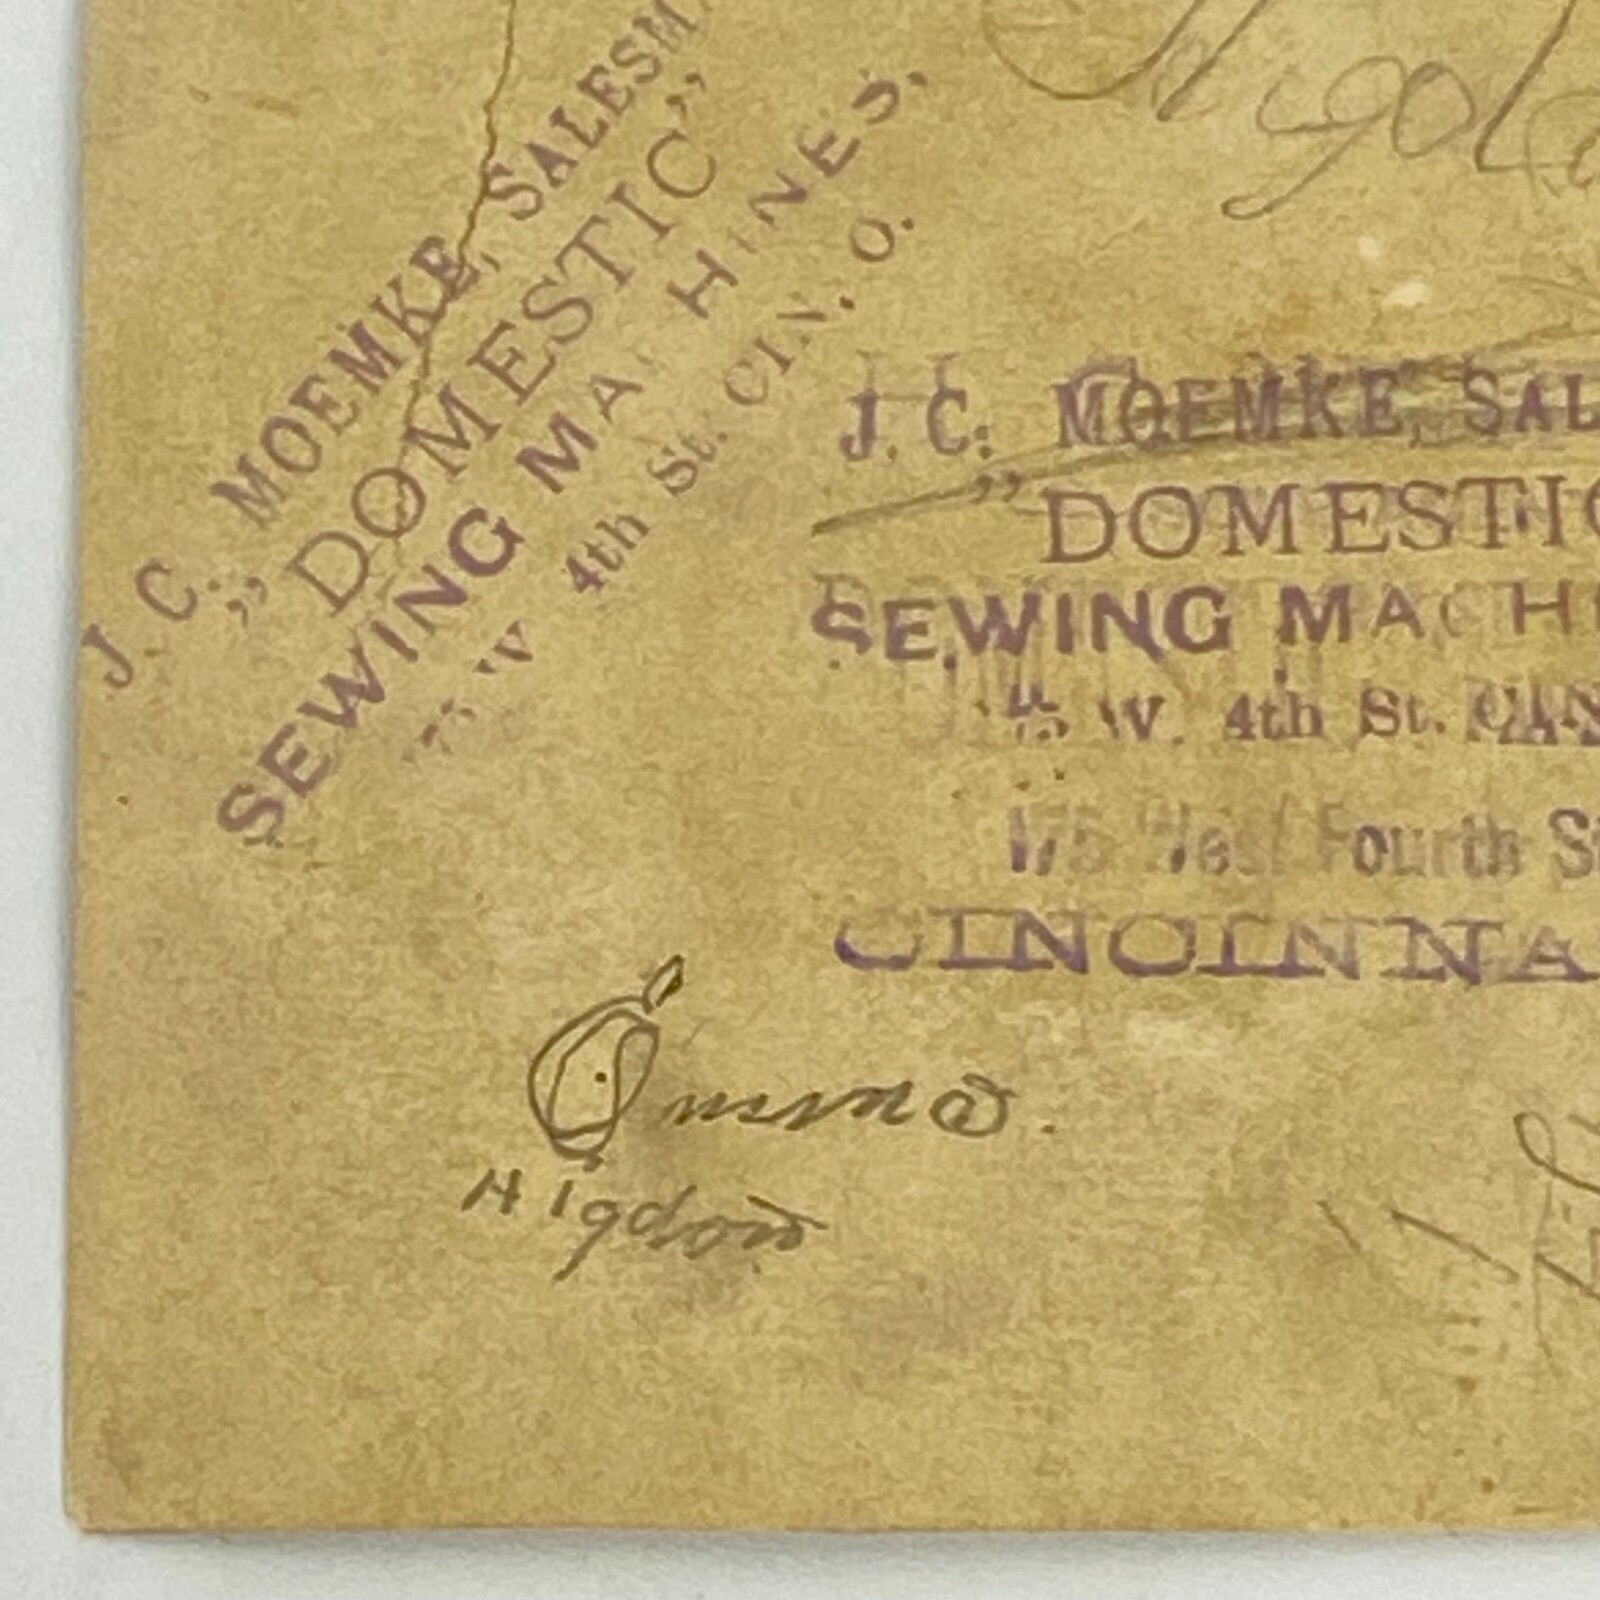 J. C. MOEMKE, SALESMA
"DOMESTIC"
SEWING MACHINES,
W 4th St. CIN. O.
J. C. MOEMKE, SAL
"DOMESTIC
SEWING MACHI
W. 4th St. CIN
175 West Fourth St
CINCINNA
Higdon